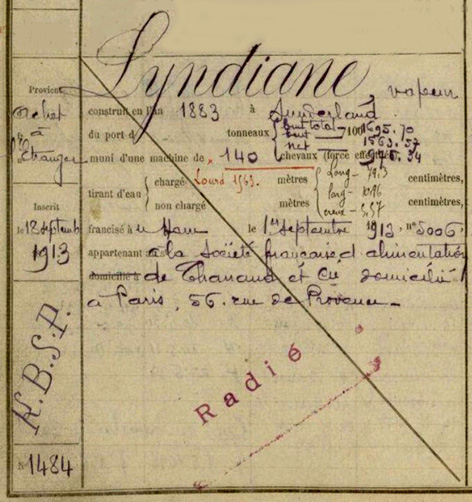 Lyndiane, vapeur
Provient
Achat
à
l'Étranger
construit en l'an 1883 à Sunderland.
du port de tonneaux { brut total 1695.70
brut 1563.57
net 945.34
/100
muni d'une machine de 140 chevaux (force effective)
Lourd 1563.
tirant d'eau { chargé mètres centimètres,
non chargé mètres centimètres,
Long - 79.3
larg - 10.96
creux - 5.57
Inscrit
le 18 septembre
1913
francisé à u Havre le 1er septembre 1913 n° 5006.
appartenant à la Société française d'alimentation
domicilié à de et Cie domicilié
à Paris, 56. rue de Provence -
K.B.S.P.
Radié
N° 1484